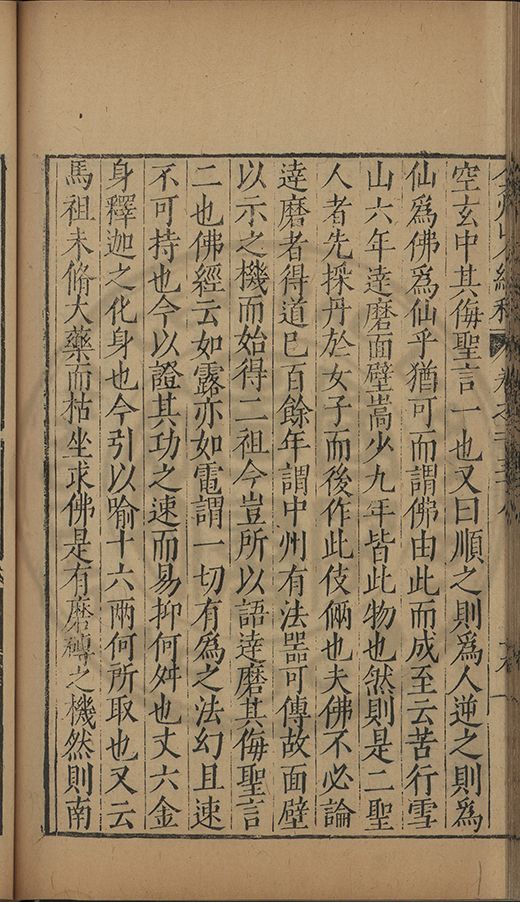 空玄中其侮聖言一也又曰順之則爲人逆之則爲
仙爲佛爲仙乎猶可而謂佛由此而成至云苦行雪
山六年達磨面壁嵩少九年皆此物也然則是二聖
人者先採丹於女子而後作此伎倆也夫佛不必論
達磨者得道已百餘年謂中州有法器可傳故面壁
以示之機而始得二祖今豈所以語達磨其侮聖言
二也佛經云如露亦如電謂一切有爲之法幻且速
不可持也今以證其功之速而易抑何舛也丈六金
身釋迦之化身也今引以喻十六兩何所取也又云
馬祖未脩大藥而枯坐求佛是有磨磚之機然則南